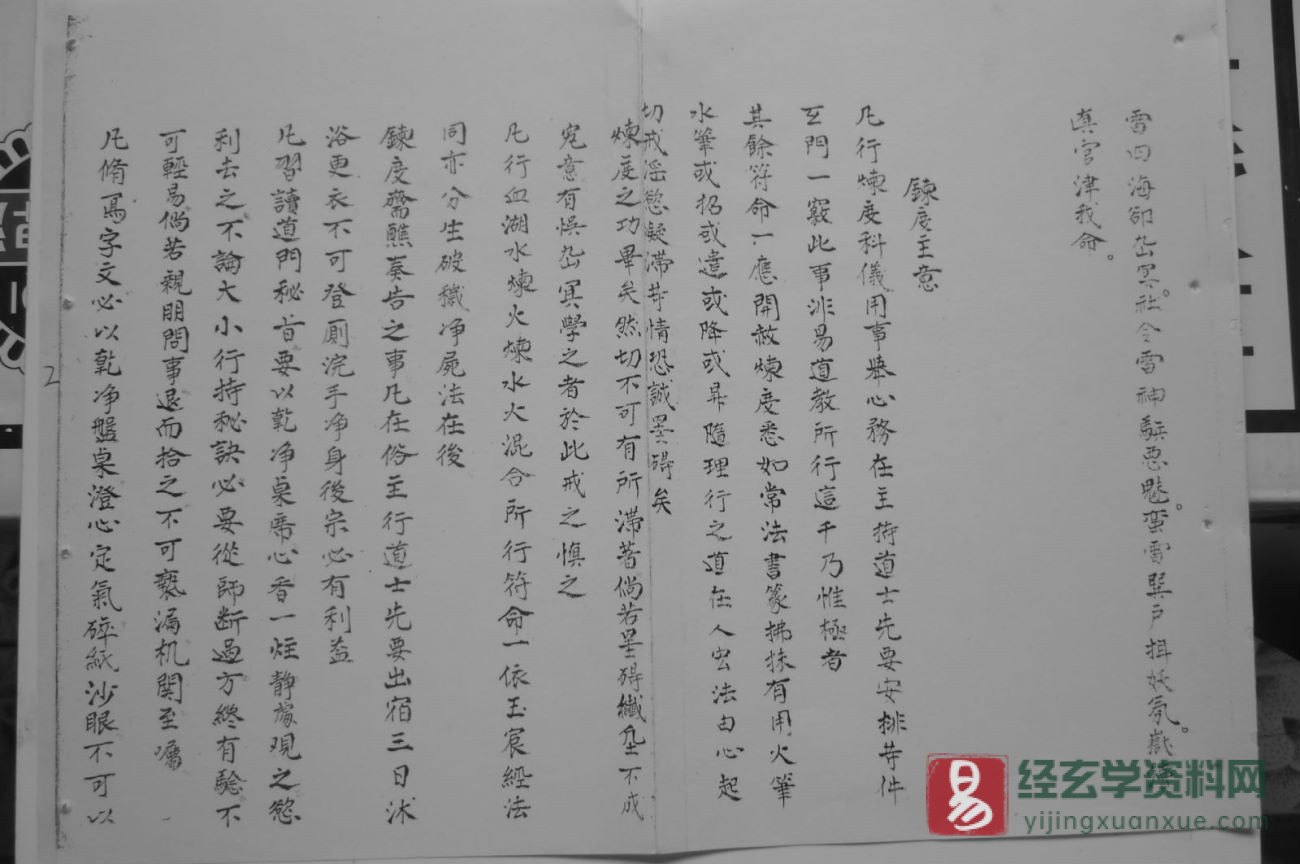 雷四海卻岳冥社令雷神驅惡魅蛮雷巽户揖妖氛嶽瀆
真官津我命。
鍊度主意
凡行煉度科儀用事舉心務在主持道士先要安排苛件
玄門一竅此事非易道教所行這千乃惟極者
其餘符命一應開赦煉度悉如常法書篆拂抹有用火筆
水筆或招或遣或降或昇隨理行之道在人宏法由心起
切戒淫慾凝滯苛情恐誠墨碍矣
煉度之功畢矣然切不可有所滯著倘若罣碍纖塵不成
宛意有悞岳冥學之者於此戒之慎之
凡行血湖水煉火煉水火混合所行符命一依玉宸經法
同亦分生破穢净屍法在後
鍊度齋醮奏告之事凡在俗主行道士先要出宿三日沐
浴更衣不可登厠浣手净身後宗必有利益
凡習讀道門秘旨要以乾净桌席心香一炷靜處观之慾
利去之不論大小行持秘訣必要從師断過方終有驗不
可輕易倘若親朋問事退而拾之不可褻漏机関至囑
凡脩寫字文必以乾净盤桌澄心定氣碎紙沙眼不可以
2
易
经玄学资料网
yijingxuanxue.com